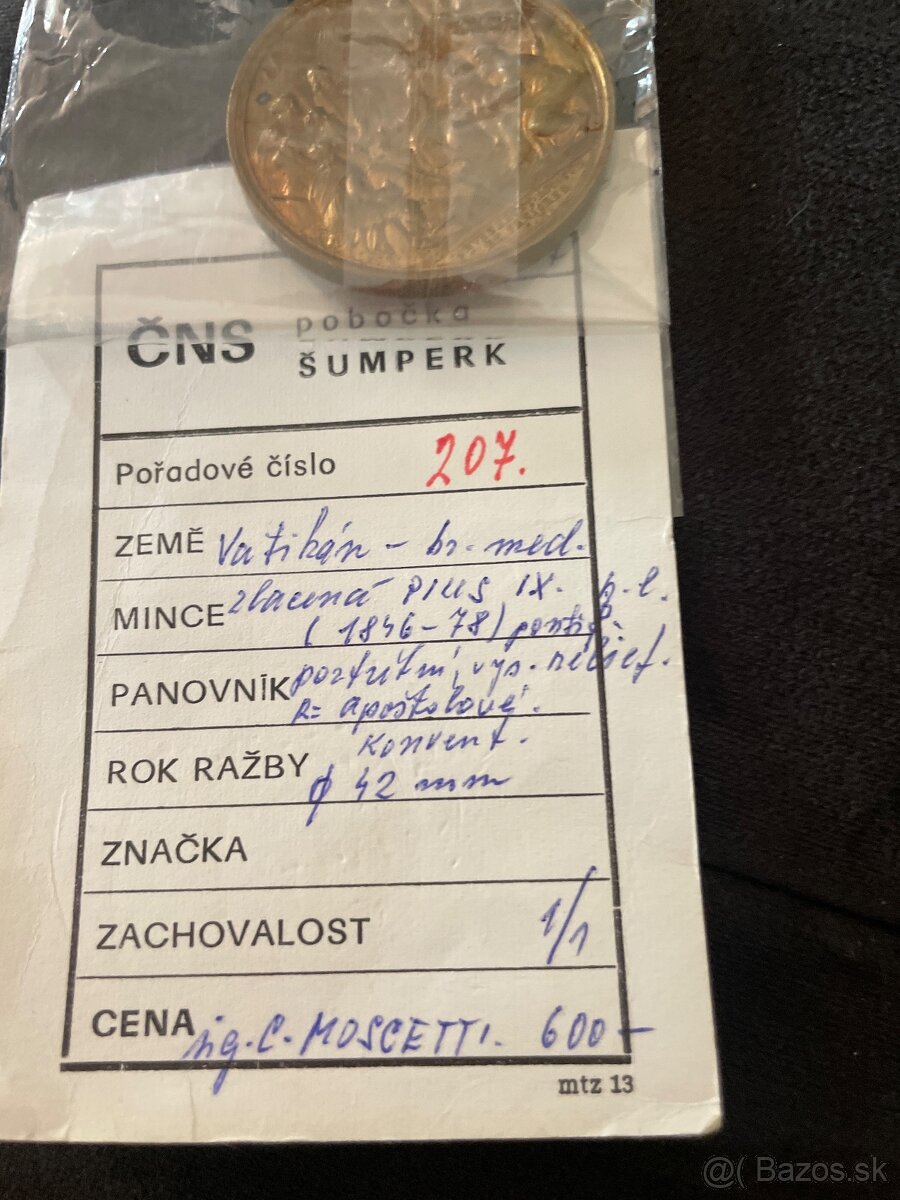 ČNS pobočka
ŠUMPERK
Pořadové číslo 207.
ZEMĚ Vatikán - br. med.
MINCE zlacená PIUS IX. b.l.
(1846-78) pontif.
PANOVNÍK portrétní, vys. reliéf.
R= apoštolové.
konvent.
ROK RAŽBY
ϕ 42 mm
ZNAČKA
ZACHOVALOST 1/1
CENA sig. C. MOSCETTI. 600-
mtz 13
@( Bazos.sk